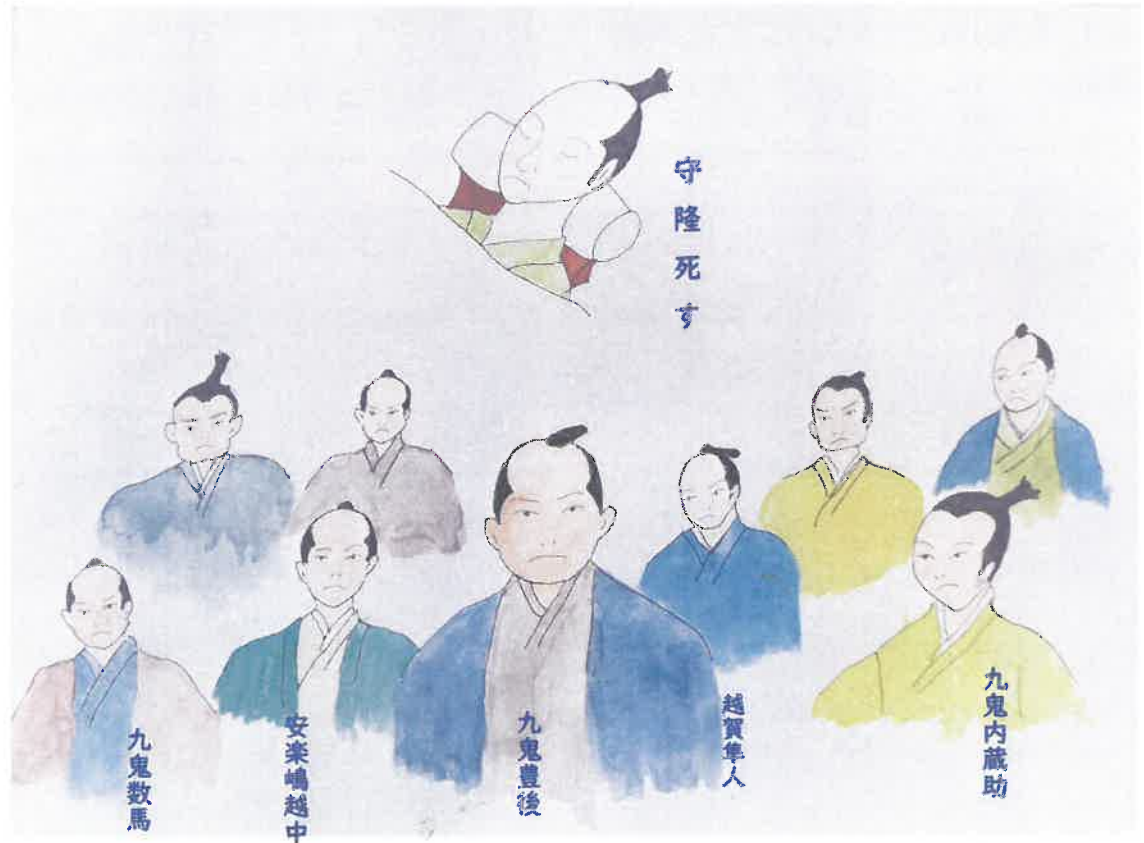 守隆死す
九鬼内蔵助
越賀隼人
九鬼豊後
安楽嶋越中
九鬼数馬